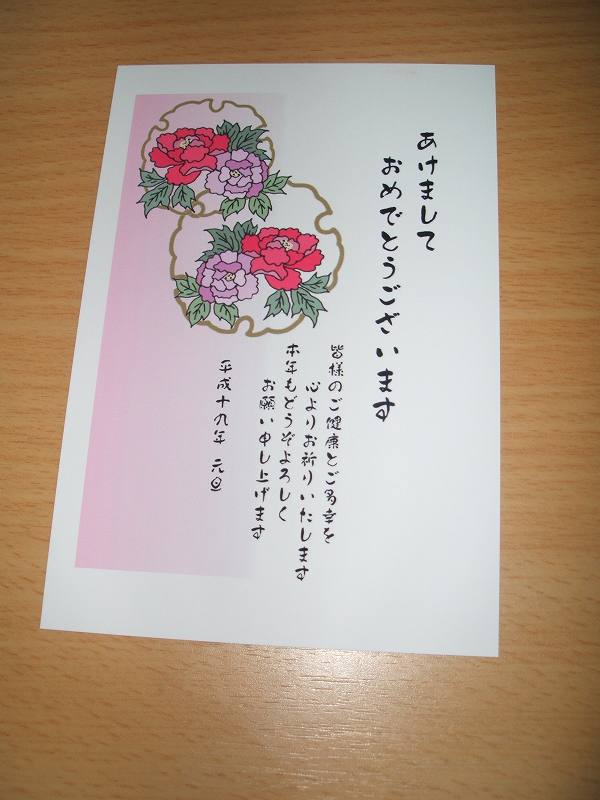 あけまして
おめでとうございます
皆様のご健康とご多幸を
心よりお祈りいたします
本年もどうぞよろしく
お願い申し上げます
平成十九年 元旦